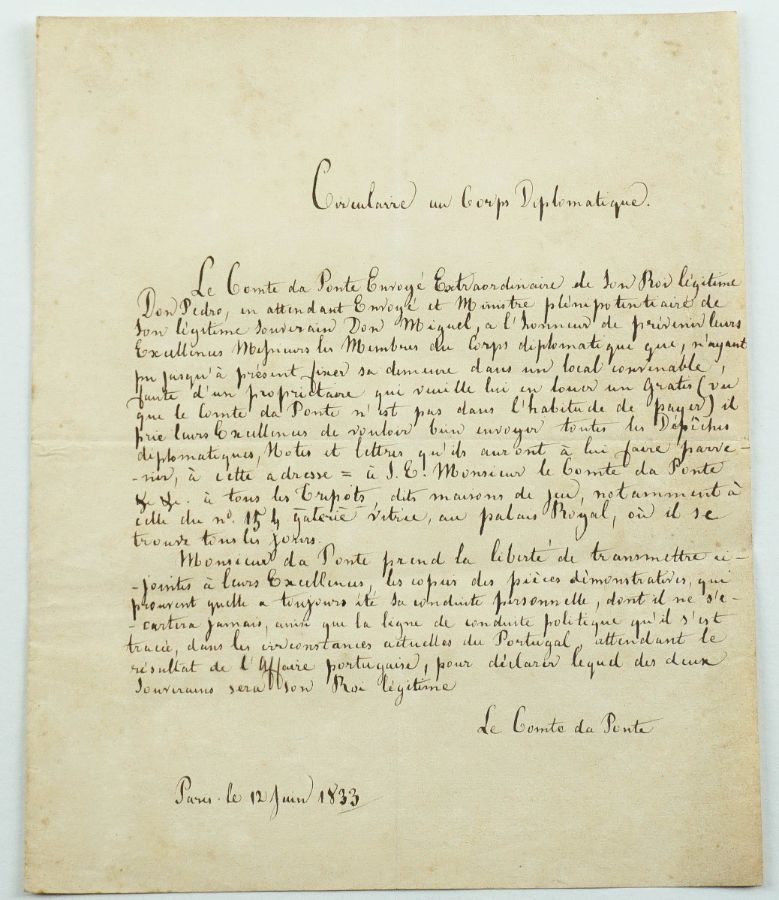 Circulaire au Corps Diplomatique.
Le Comte da Ponte Envoyé Extraordinaire de Son Roi légitime
Don Pedro, en attendant Envoyé et Ministre plénipotentiaire de
Son légitime Souverain Don Miguel, a l'honneur de prévenir leurs
Excellences Messieurs les Membres du Corps diplomatique que, n'ayant
pu jusqu'à présent fixer sa demeure dans un local convenable,
faute d'un propriétaire qui veuille lui en louer un gratis (vu
que le Comte da Ponte n'est pas dans l'habitude de payer) il
prie leurs Excellences de vouloir bien envoyer toutes les Dépêches
diplomatiques, Notes et lettres qu'ils auront à lui faire parve-
-nir, à cette adresse = à S. E. Monsieur le Comte da Ponte
&c &c. à tous les Tripôts, dits maisons de jeu, notamment à
celle du nº. 154 galerie vitrée, au palais Royal, où il se
trouve tous les jours.
Monsieur da Ponte prend la liberté de transmettre ci-
-jointes à leurs Excellences, les copies des pièces démonstratives, qui
prouvent quelle a toujours été sa conduite personnelle, dont il ne s'é-
-cartera jamais, ainsi que la ligne de conduite politique qu'il s'est
tracée, dans les circonstances actuelles du Portugal, attendant le
résultat de l'Affaire portugaise, pour déclarer lequel des deux
Souverains sera Son Roi légitime
Le Comte da Ponte
Paris le 12 Juin 1833